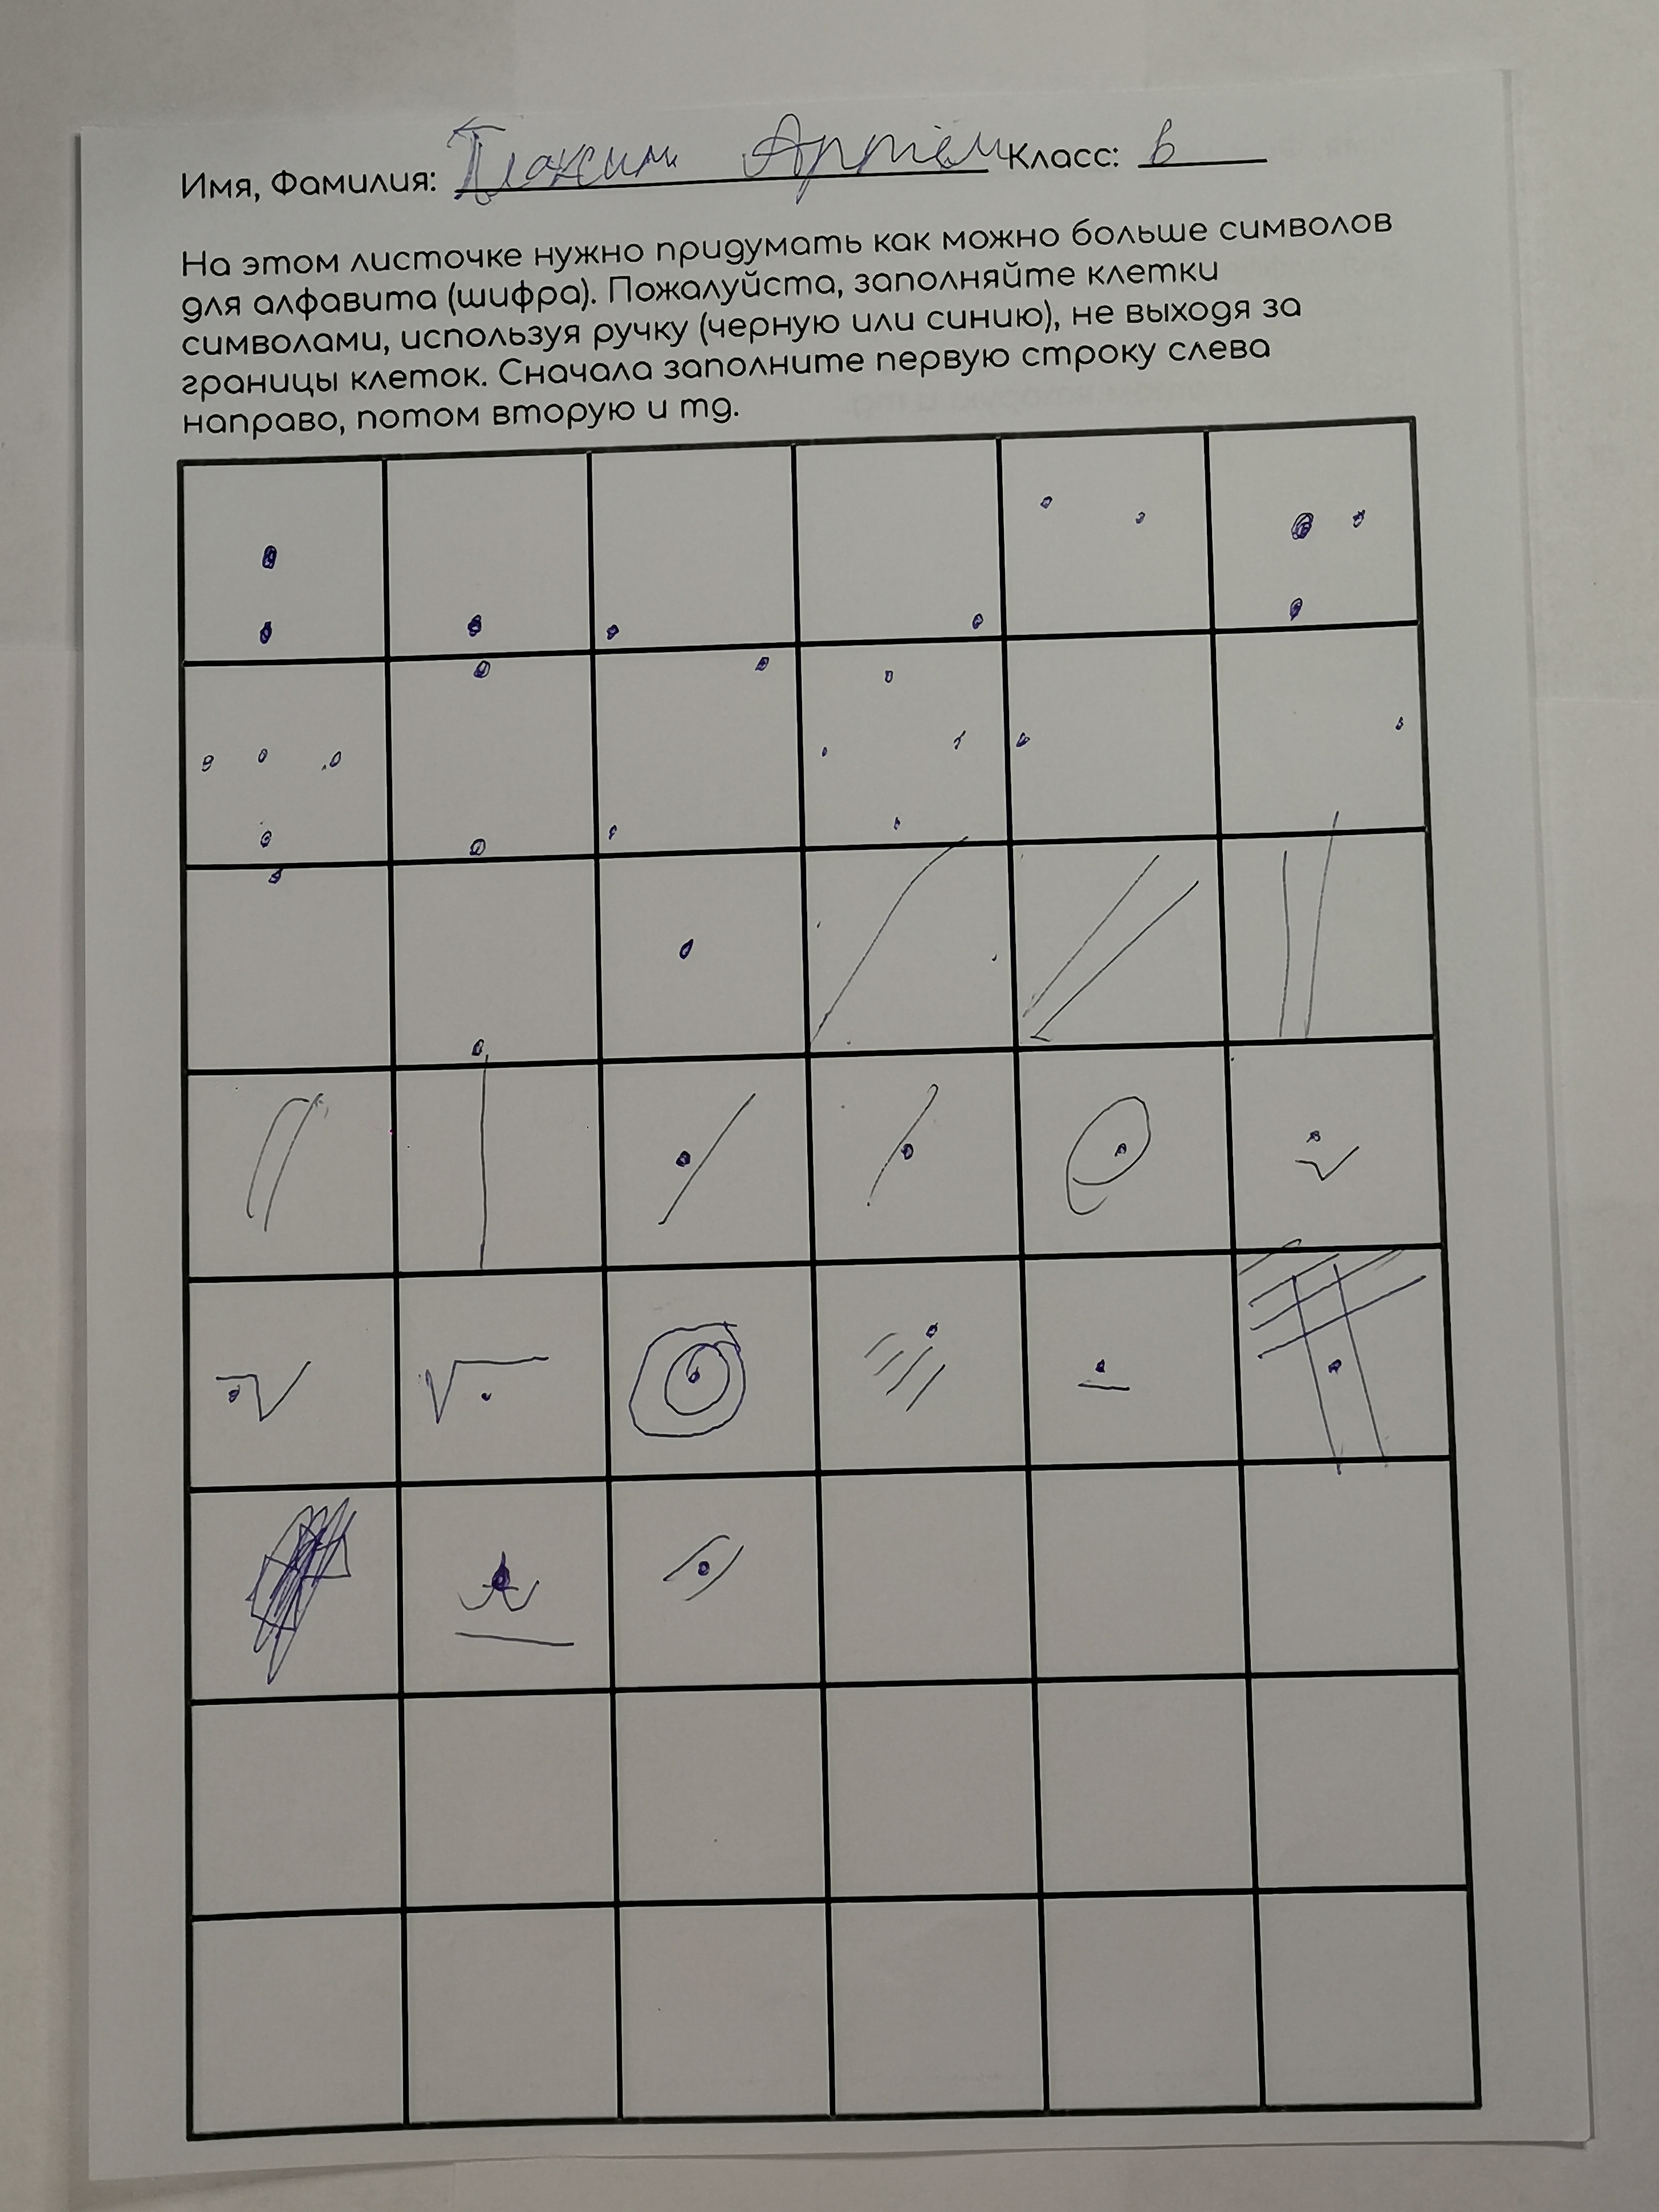 Имя, Фамилия: Артём Класс: в
На этом листочке нужно придумать как можно больше символов
для алфавита (шифра). Пожалуйста, заполняйте клетки
символами, используя ручку (черную или синию), не выходя за
границы клеток. Сначала заполните первую строку слева
направо, потом вторую и тд.